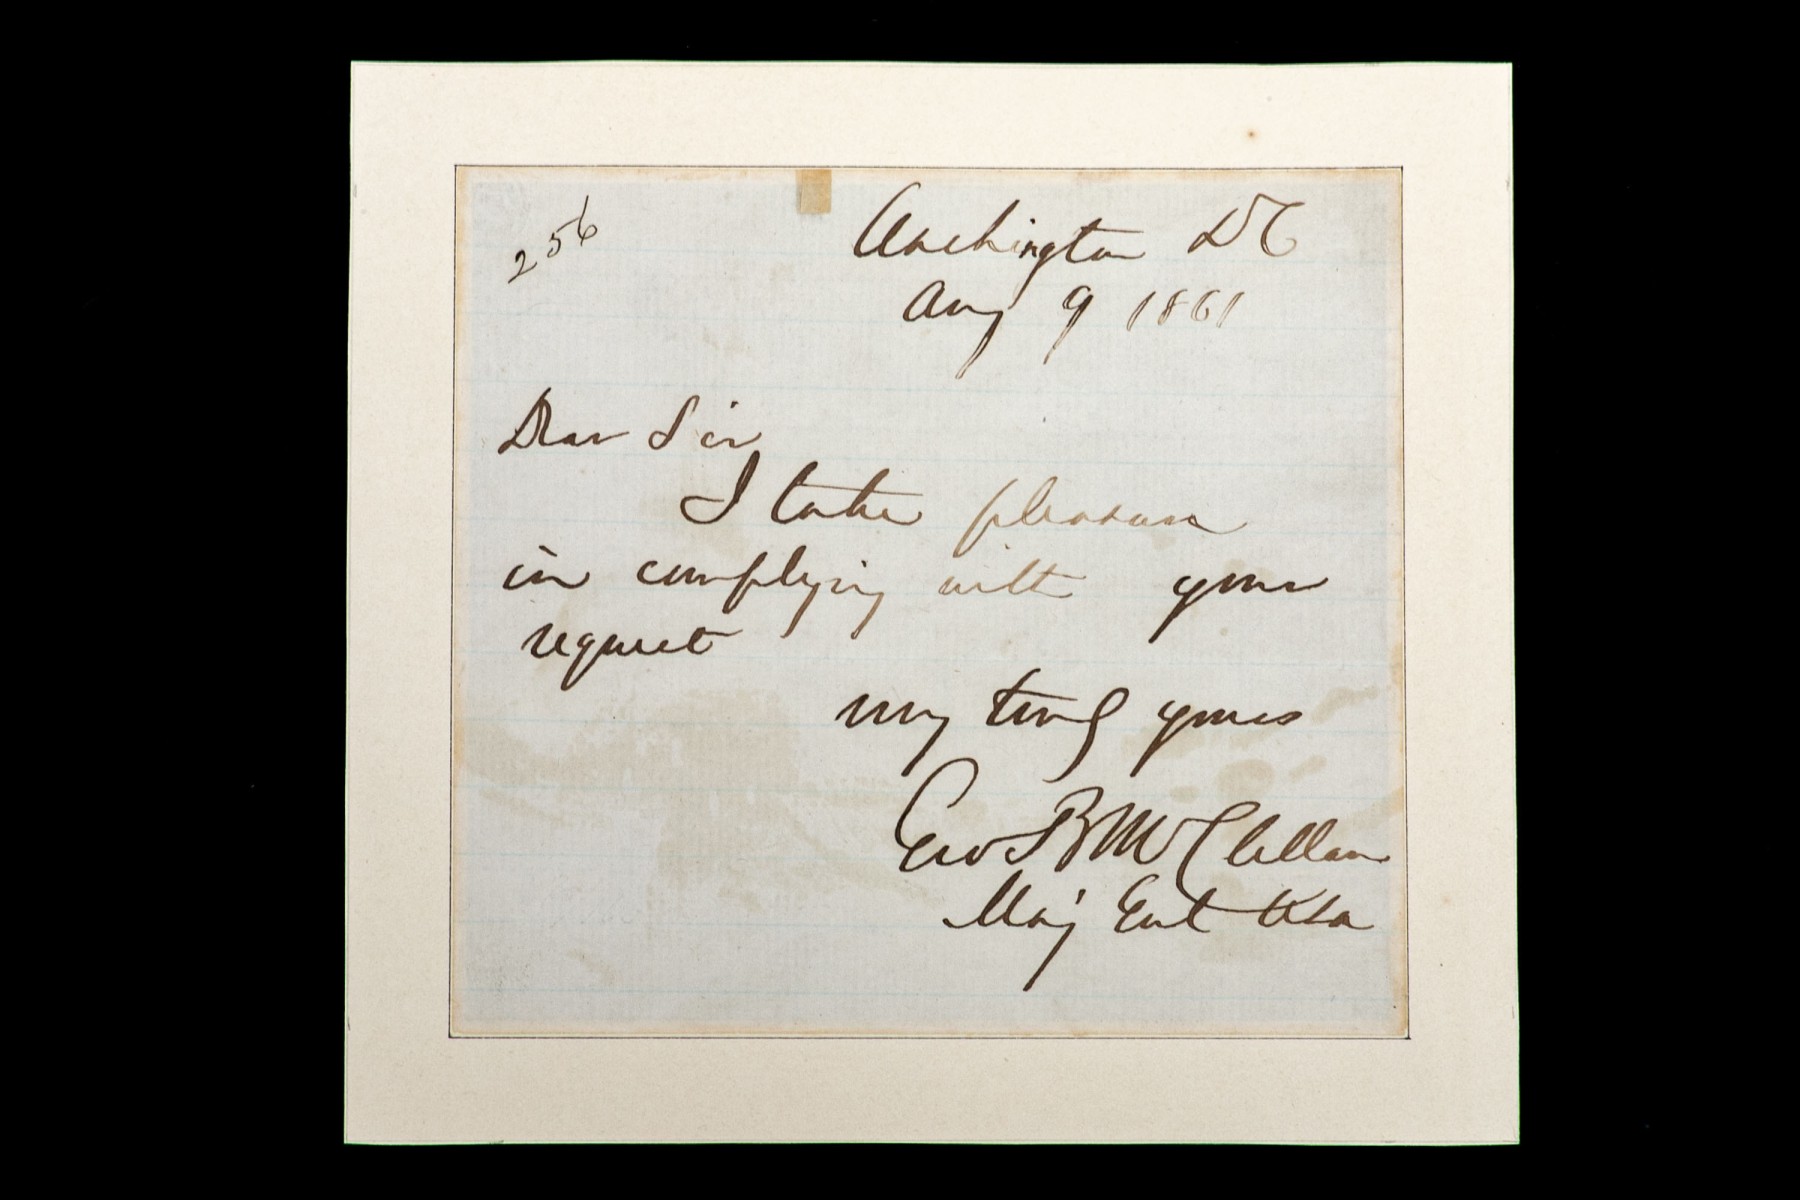 256
Washington DC
Aug 9 1861
Dear Sir
I take pleasure
in complying with your
request
very truly yours
Geo B McClellan
Maj Genl USA